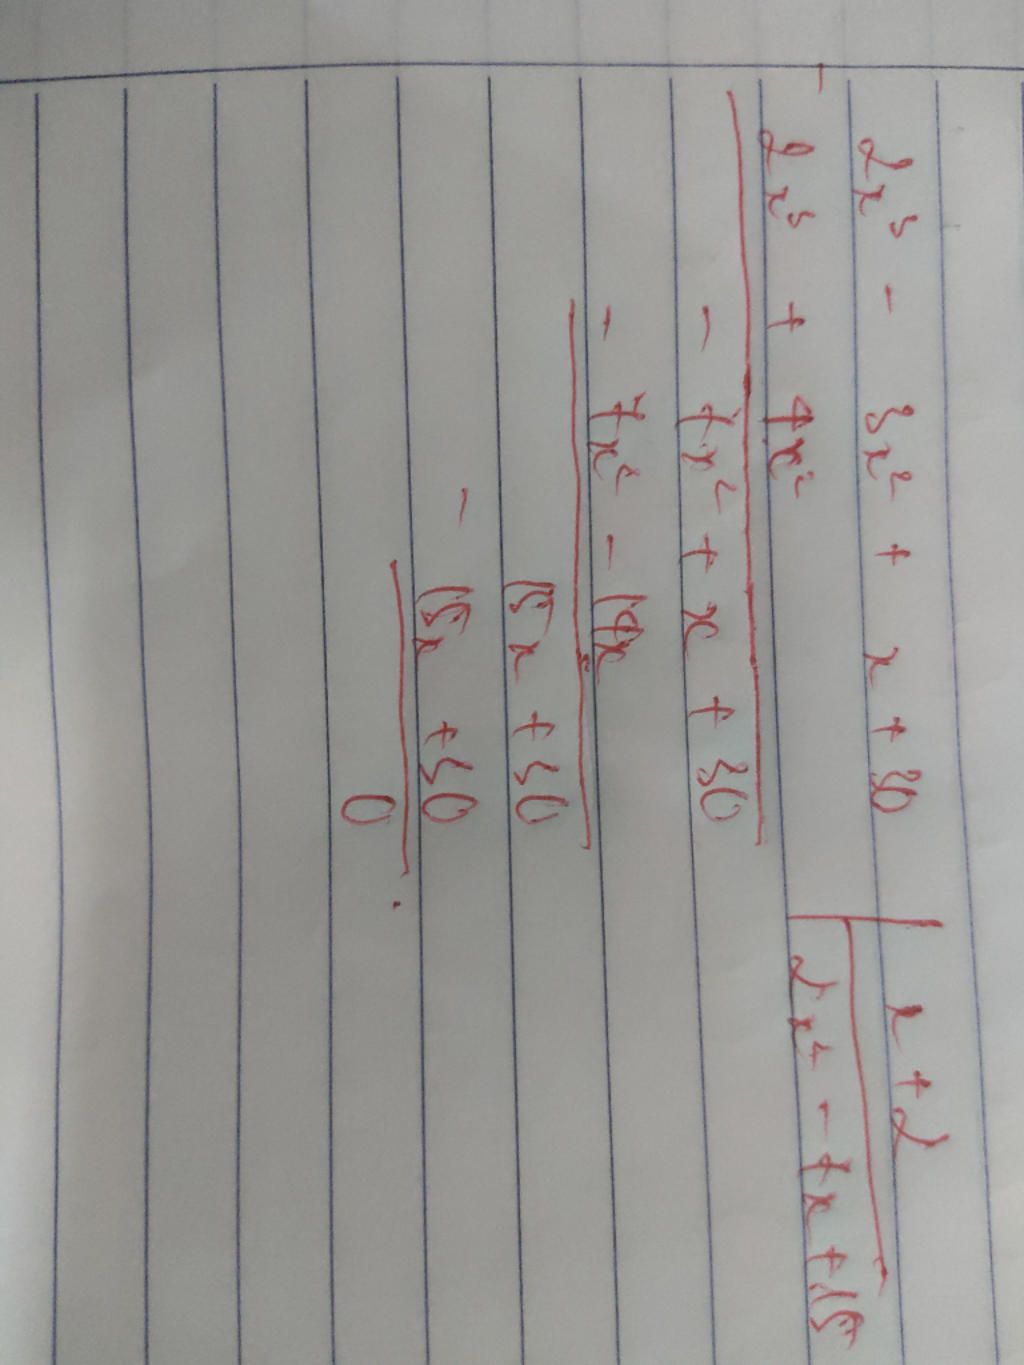 2x³ - 3x² + x + 30 | x + 2
- 2x³ + 4x² | 2x² - 7x + 15
- 7x² + x + 30
- 7x² - 14x
15x + 30
- 15x + 30
0